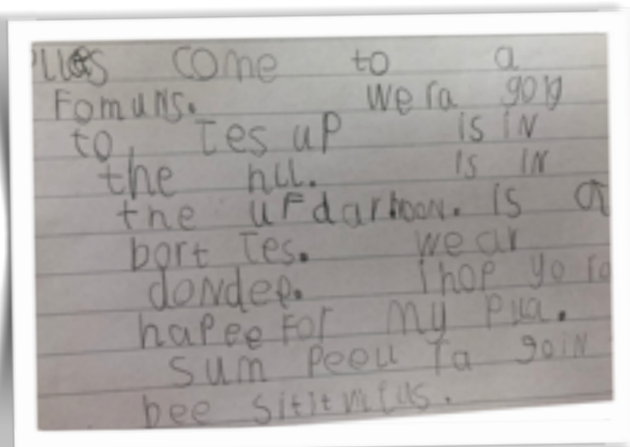 come to a
Fomuns. we ra gorg
to, Tes uP is iN
the hll. is iN
the uFdarhoon. is a
bort Tes. we ar
doNdee. i hop yo ra
haPee For my Pua.
sum Peeu ra goiN
bee